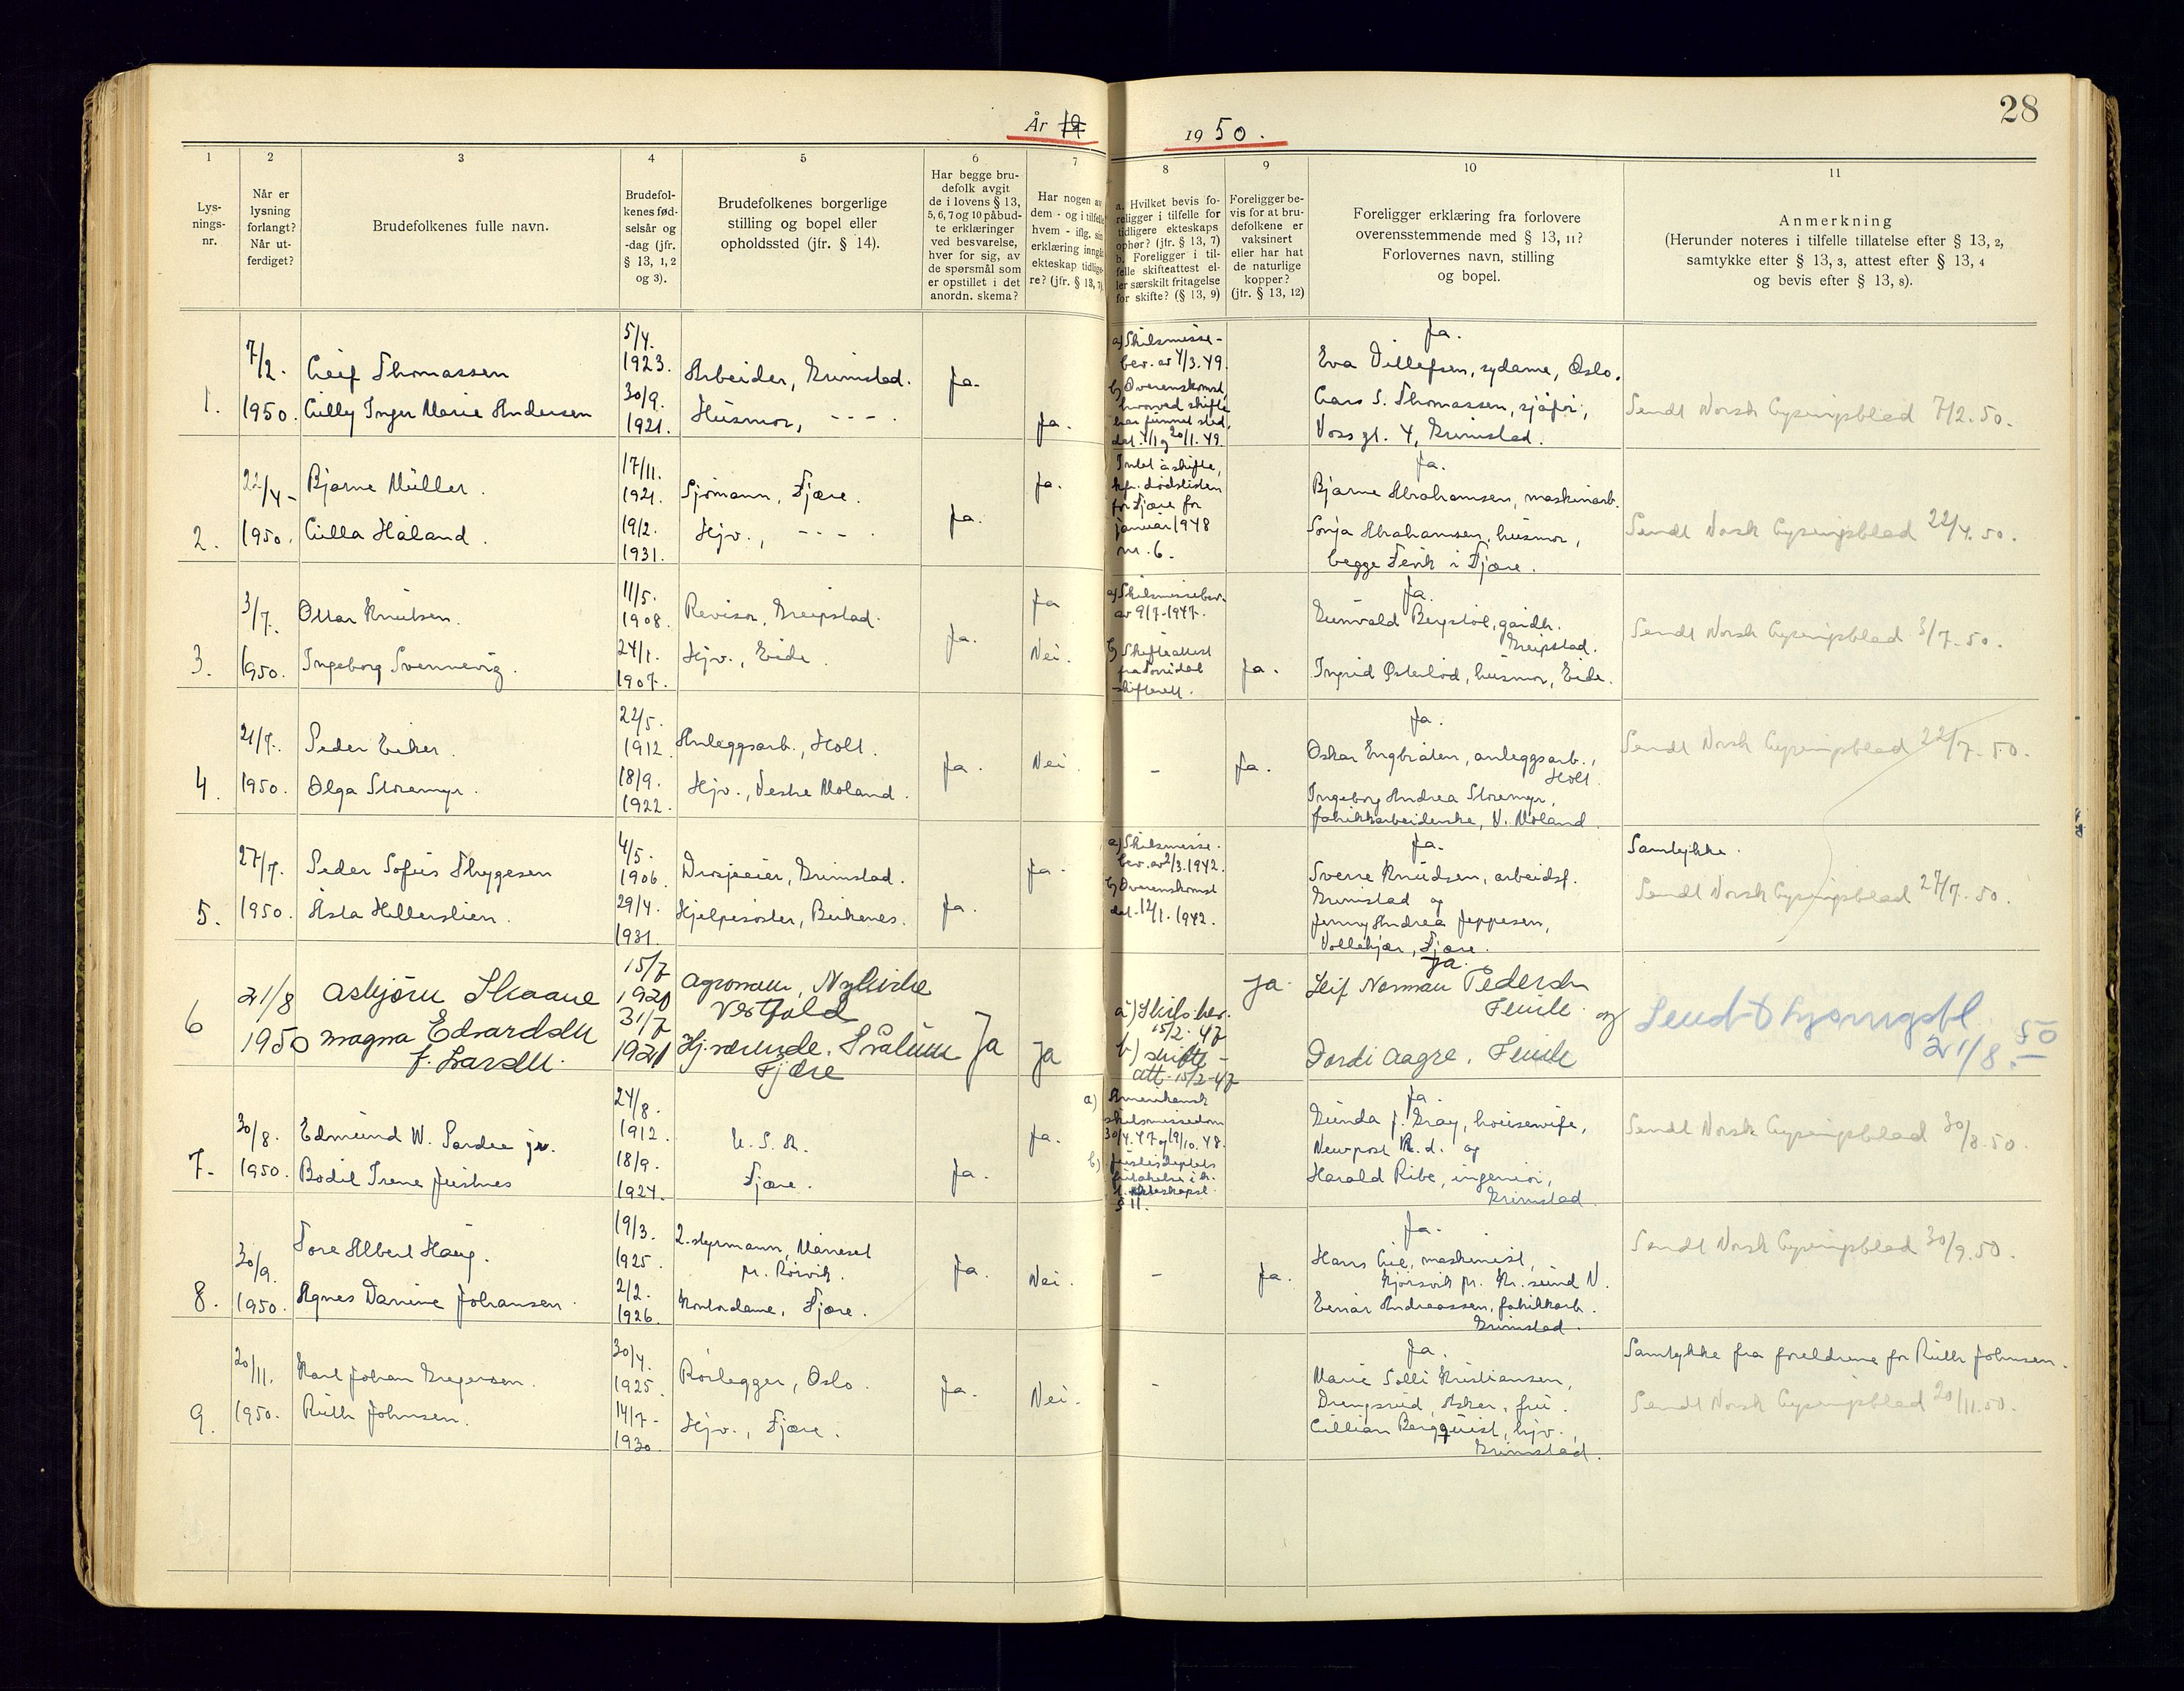 28
År 19
1950.
1
2
3
4
5
6
7
8
9
10
11
Lys-
nings-
nr.
Når er
lysning
forlangt?
Når ut-
ferdiget?
Brudefolkenes fulle navn.
Brudefol-
kenes fød-
selsår og
-dag (jfr.
§ 13, 1, 2
og 3).
Brudefolkenes borgerlige
stilling og bopel eller
opholdssted (jfr. § 14).
Har begge bru-
defolk avgit
de i lovens § 13,
5, 6, 7 og 10 påbud-
te erklæringer
ved besvarelse,
hver for sig, av
de spørsmål som
er opstillet i det
anordn. skema?
Har nogen av
dem - og i tilfelle
hvem - iflg. sin
erklæring inngått
ekteskap tidlige-
re? (jfr. § 13, 7)
a. Hvilket bevis fo-
religger i tilfelle for
tidligere ekteskaps
ophør? (jfr. § 13, 7)
b. Foreligger i til-
felle skifteattest el-
ler særskilt fritagelse
for skifte? (§ 13, 9)
Foreligger be-
vis for at bru-
defolkene er
vaksinert
eller har hat
de naturlige
kopper?
(jfr. § 13, 12)
Foreligger erklæring fra forlovere
overensstemmende med § 13, 11?
Forlovernes navn, stilling
og bopel.
Anmerkning
(Herunder noteres i tilfelle tillatelse efter § 13, 2,
samtykke efter § 13, 3, attest efter § 13, 4
og bevis efter § 13, 8).
1.
7/2.
1950.
Leif Thomassen
Lilly Inger Marie Andersen
5/4.
1923.
30/9.
1921.
Arbeider, Grimstad.
Husmor, - - - .
Ja.
Ja.
a) Skilsmisse-
bev. av 4/3.49.
b) Overenskomst,
hvorved skifte
har funnet sted,
dat. 4/1 og 20/1.49.
Ja.
Eva Tellefsen, sydame, Oslo.
Lars S. Thomassen, sjåfør,
Voss gt. 4, Grimstad.
Sendt Norsk Lysningsblad 7/2.50.
2.
22/4-
1950.
Bjarne Müller.
Lilla Håland.
17/11.
1921.
19/2.
1931.
Sjømann, Fjære.
Hjv., - - - .
Ja.
Ja.
Intet å skifte,
kfr. dødslisten
for Fjære for
januar 1948
nr. 6.
Ja.
Bjarne Abrahamsen, maskinarb.
Sonja Abrahamsen, husmor,
begge Fevik i Fjære.
Sendt Norsk Lysningsblad 22/4.50.
3.
3/7.
1950.
Ottar Knutsen.
Ingeborg Svennevig.
11/5.
1908.
24/1.
1907.
Revisor, Greipstad.
Hjv., Eide.
Ja.
Ja
Nei.
a) Skilsmissebev.
av 9/7-1947.
b) Skifteattest
fra Torridal
skifterett.
Ja.
Ja.
Gunvald Bergstøl, gårdbr.
Greipstad.
Ingrid Østerlod, husmor, Eide.
Sendt Norsk Lysningsblad 3/7.50.
4.
21/7.
1950.
Peder Eiker.
Olga Storemyr.
22/5.
1912
18/9.
1922.
Anleggsarb., Holt.
Hjv., Vestre Moland.
Ja.
Nei.
-
Ja.
Ja.
Oskar Engbråten, anleggsarb.,
Holt.
Ingeborg Andrea Storemyr,
fabrikkarbeiderske, V. Moland.
Sendt Norsk Lysningsblad 22/7.50.
5.
27/7.
1950.
Peder Sofus Thygesen
Asta Hellerslien.
4/5.
1906.
29/4.
1931.
Drosjeeier, Grimstad.
Hjelpesøster, Birkenes.
Ja.
Ja.
a) Skilsmisse-
bev. av 2/3.1942.
b) Overenskomst
dat. 12/1.1942.
Ja.
Sverre Knudsen, arbeidsf.
Grimstad og
Jenny Andrea Jeppesen,
Vollekjær, Fjære.
Samtykke.
Sendt Norsk Lysningsblad 27/7.50.
6
21/8
1950
Asbjørn Skaane
Magna Edvardsen
f. Larsen.
15/7
1920
31/7
1921
Agronom, Nykirke
Vestfold
Hj.værende.
Fjære
Ja
Ja
a) Skils.bev.
15/2.47
b) skifte-
att-15/2-47
Ja.
Ja.
Leif Norman Pedersen
Fevik og
Dordi Aagre. Fevik
Sendt Lysningsbl
21/8.50
7.
30/8.
1950.
Edmund W. Pardee jr.
Bodil Irene Justnes
24/8.
1912.
18/9.
1924.
U. S. A.
Fjære.
Ja.
Ja.
a) Amerikansk
skilsmissedom
30/4.47 og 19/10.48.
b) Justisdeptets
fritakelse i h.
t. ekteskapsl.
§ 11.
Ja.
Gunda J. Gray, housewife,
Newport R. d. og
Harald Ribe, ingeniør,
Grimstad
Sendt Norsk Lysningsblad 30/8.50
8.
30/9.
1950.
Tore Albert Haug.
Agnes Danine Johansen.
19/3.
1925.
2/2.
1926.
2. styrmann, Marneset
pr. Rørvik.
Kontordame, Fjære.
Ja.
Nei.
-
Ja.
Ja.
Hans Lie, maskinist,
Kjørsvik pr. Kr.sund N.
Einar Andreassen, fabrikkarb.
Grimstad.
Sendt Norsk Lysningsblad 30/9.50.
9.
20/11.
1950.
Karl Johan Gregersen.
Ruth Johnsen.
30/4.
1925.
14/7-
1930.
Rørlegger, Oslo.
Hjv., Fjære.
Ja.
Nei.
-
Ja.
Marie Solli Kristiansen,
Drengsrud, Asker, fru.
Lillian Bergquist, hjv.,
Grimstad.
Samtykke fra foreldrene for Ruth Johnsen.
Sendt Norsk Lysningsblad 20/11.50.